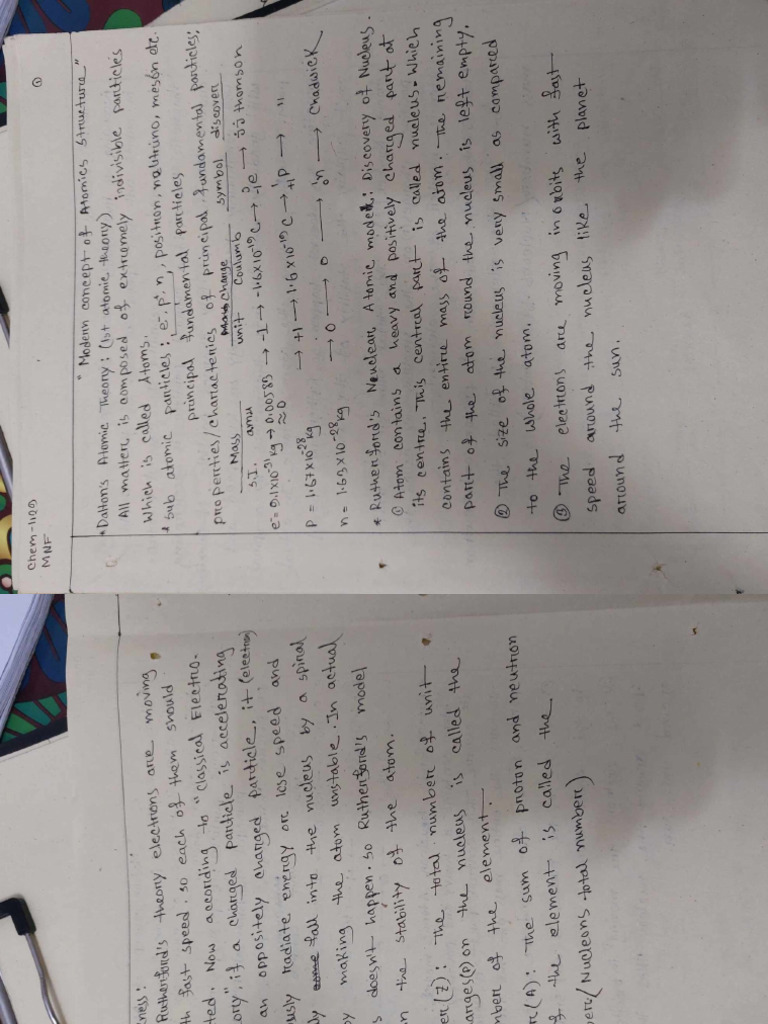 Chem-1109
MNF
①
"Modern concept of Atomics Structure"
*Dalton's Atomic Theory: (1st atomic theory)
All matter is composed of extremely indivisible particles
Which is called Atoms.
* Sub atomic particles: e⁻, p⁺, n, positron, neutrino, meson etc.
principal fundamental particles
properties/characterics of principal fundamental particles:
Mass charge symbol discover
S.I. amu unit Coulumb
e⁻= 9.1×10⁻³¹ kg → 0.00589 → -1 → -1.6×10⁻¹⁹ C → ⁰₋₁e → JJ thomson
≈ 0
P = 1.67×10⁻²⁸ kg → +1 → 1.6×10⁻¹⁹ C → ¹₊₁P → "
n = 1.69×10⁻²⁸ kg → 0 → 0 → ¹₀n → Chadwick
* Rutherford's Neuclear Atomic model: Discovery of Nucleus.
Atom contains a heavy and positively charged part at
its centre. This central part is called nucleus. Which
contains the entire mass of the atom. The remaining
part of the atom round the nucleus is left empty.
② The size of the nucleus is very small as compared
to the whole atom.
③ The electrons are moving in orbits with fast
speed around the nucleus like the planet
around the sun.
ness:
Rutherford's theory electrons are moving
th fast speed. so each of them should
ted. Now according to "Classical Electro-
ory", if a charged particle is accelerating
an oppositely charged particle, it (electron)
usly radiate energy or lose speed and
ly fall into the nucleus by a spiral
by making the atom unstable. In actual
s doesn't happen. so Rutherford's model
n the stability of the atom.
er (Z): The total number of unit
arges(p) on the nucleus is called the
mber of the element.
er(A): The sum of proton and neutron
f the element is called the
ber/(Nucleons total number)